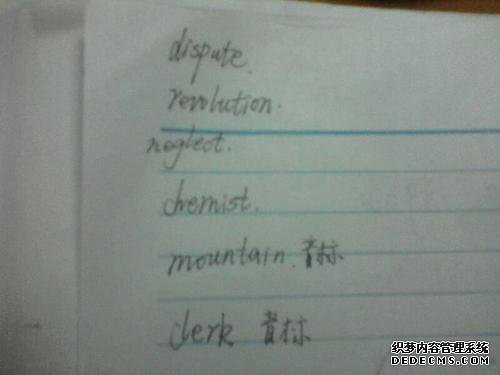 dispute.
revolution.
neglect.
chemist.
mountain. 音标
clerk 音标
织梦内容管理系统
DEDECMS.COM